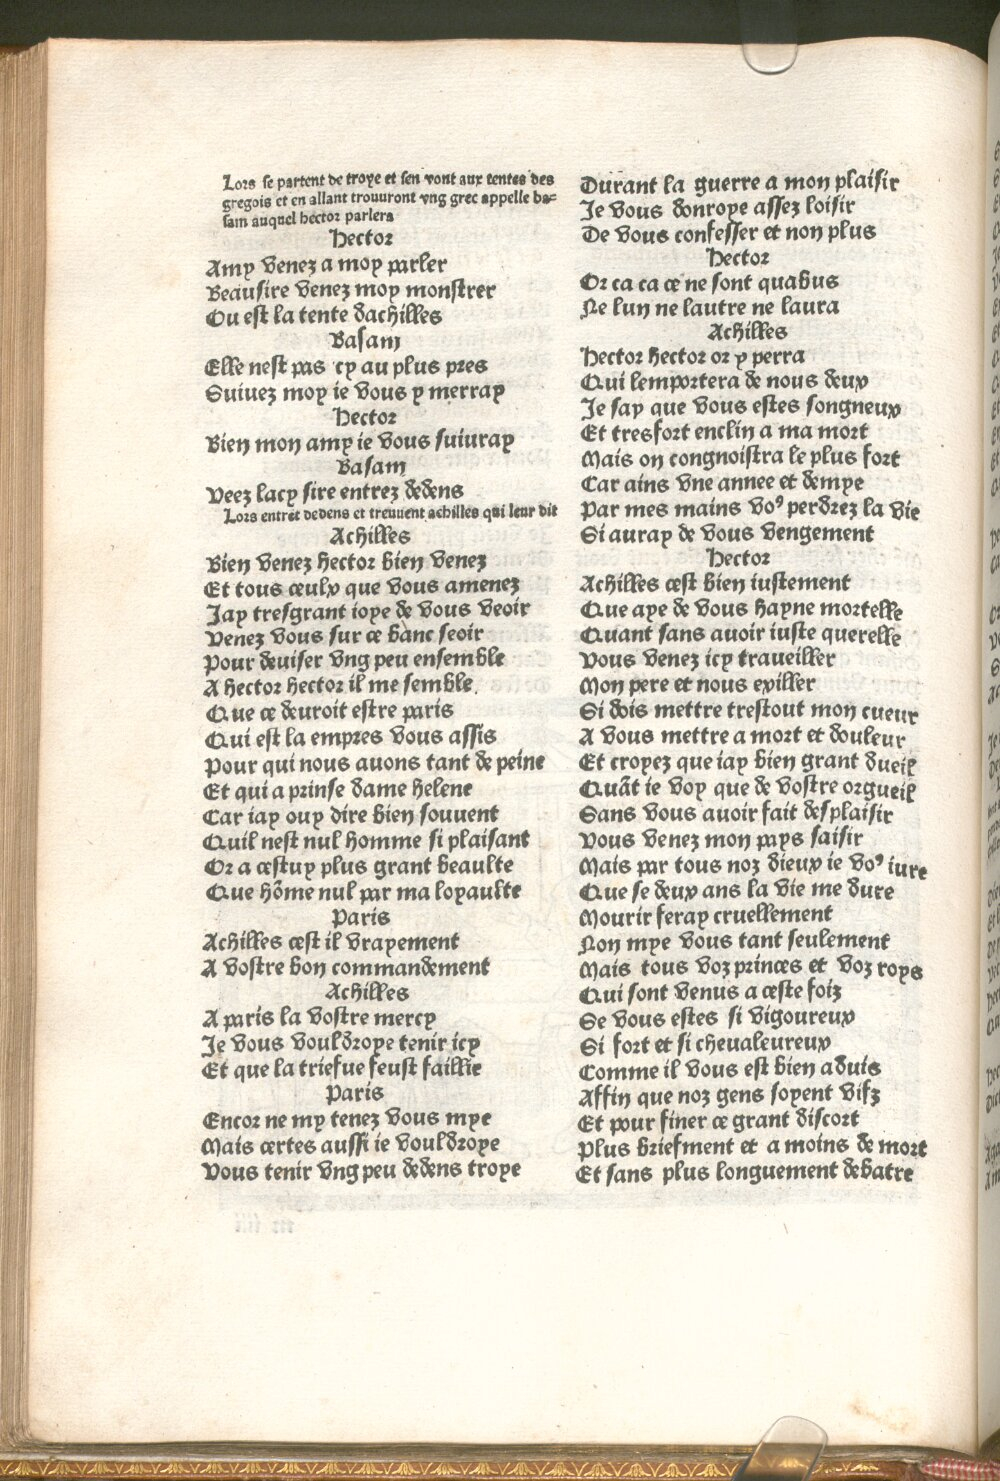 Lors se partent de troye et sen vont aux tentes des
gregois et en allant trouuront vng grec appelle ba=
sam auquel hector parlera
Hector
Amy venez a moy parler
Beausire venez moy monstrer
Ou est la tente dachilles
Basam
Elle nest pas cy au plus pres
Suiuez moy ie vous y merray
Hector
Bien mon amy ie vous suiuray
Basam
Veez lacy sire entrez dedens
Lors entrēt dedens et treuuent achilles qui leur dit
Achilles
Bien venez hector bien venez
Et tous ceulx que vous amenez
Jay tresgrant ioye de vous veoir
Venez vous sur ce banc seoir
Pour deuiser vng peu ensemble
A hector hector il me semble
Que ce deuroit estre paris
Qui est la empres vous assis
Pour qui nous auons tant de peine
Et qui a prinse dame helene
Car iay ouy dire bien souuent
Quil nest nul homme si plaisant
Or a cestuy plus grant beaulte
Que hōme nul par ma loyaulte
Paris
Achilles cest il vrayement
A vostre bon commandement
Achilles
A paris la vostre mercy
Je vous vouldroye tenir icy
Et que la triefue feust faillie
Paris
Encor ne my tenez vous mye
Mais certes aussi ie vouldroye
Vous tenir vng peu dedens troye
Durant la guerre a mon plaisir
Je vous donroye assez loisir
De vous confesser et non plus
Hector
Or ca ca ce ne sont quabus
Ne lun ne lautre ne laura
Achilles
Hector hector or y perra
Qui lemportera de nous deux
Je say que vous estes songneux
Et tresfort enclin a ma mort
Mais on congnoistra le plus fort
Car ains vne annee et demye
Par mes mains voꝰ perdrez la vie
Si auray de vous vengement
Hector
Achilles cest bien iustement
Que aye de vous hayne mortelle
Quant sans auoir iuste querelle
Vous venez icy traueiller
Mon pere et nous exiller
Si dois mettre trestout mon cueur
A vous mettre a mort et douleur
Et croyez que iay bien grant dueil
Quāt ie voy que de vostre orgueil
Sans vous auoir fait desplaisir
Vous venez mon pays saisir
Mais par tous noz dieux ie voꝰ iure
Que se deux ans la vie me dure
Mourir feray cruellement
Non mye vous tant seulement
Mais tous voz princes et voz roys
Qui sont venus a ceste foiz
Se vous estes si vigoureux
Si fort et si cheualeureux
Comme il vous est bien aduis
Affin que noz gens soyent vifz
Et pour finer ce grant discort
Plus briefment et a moins de mort
Et sans plus longuement debatre